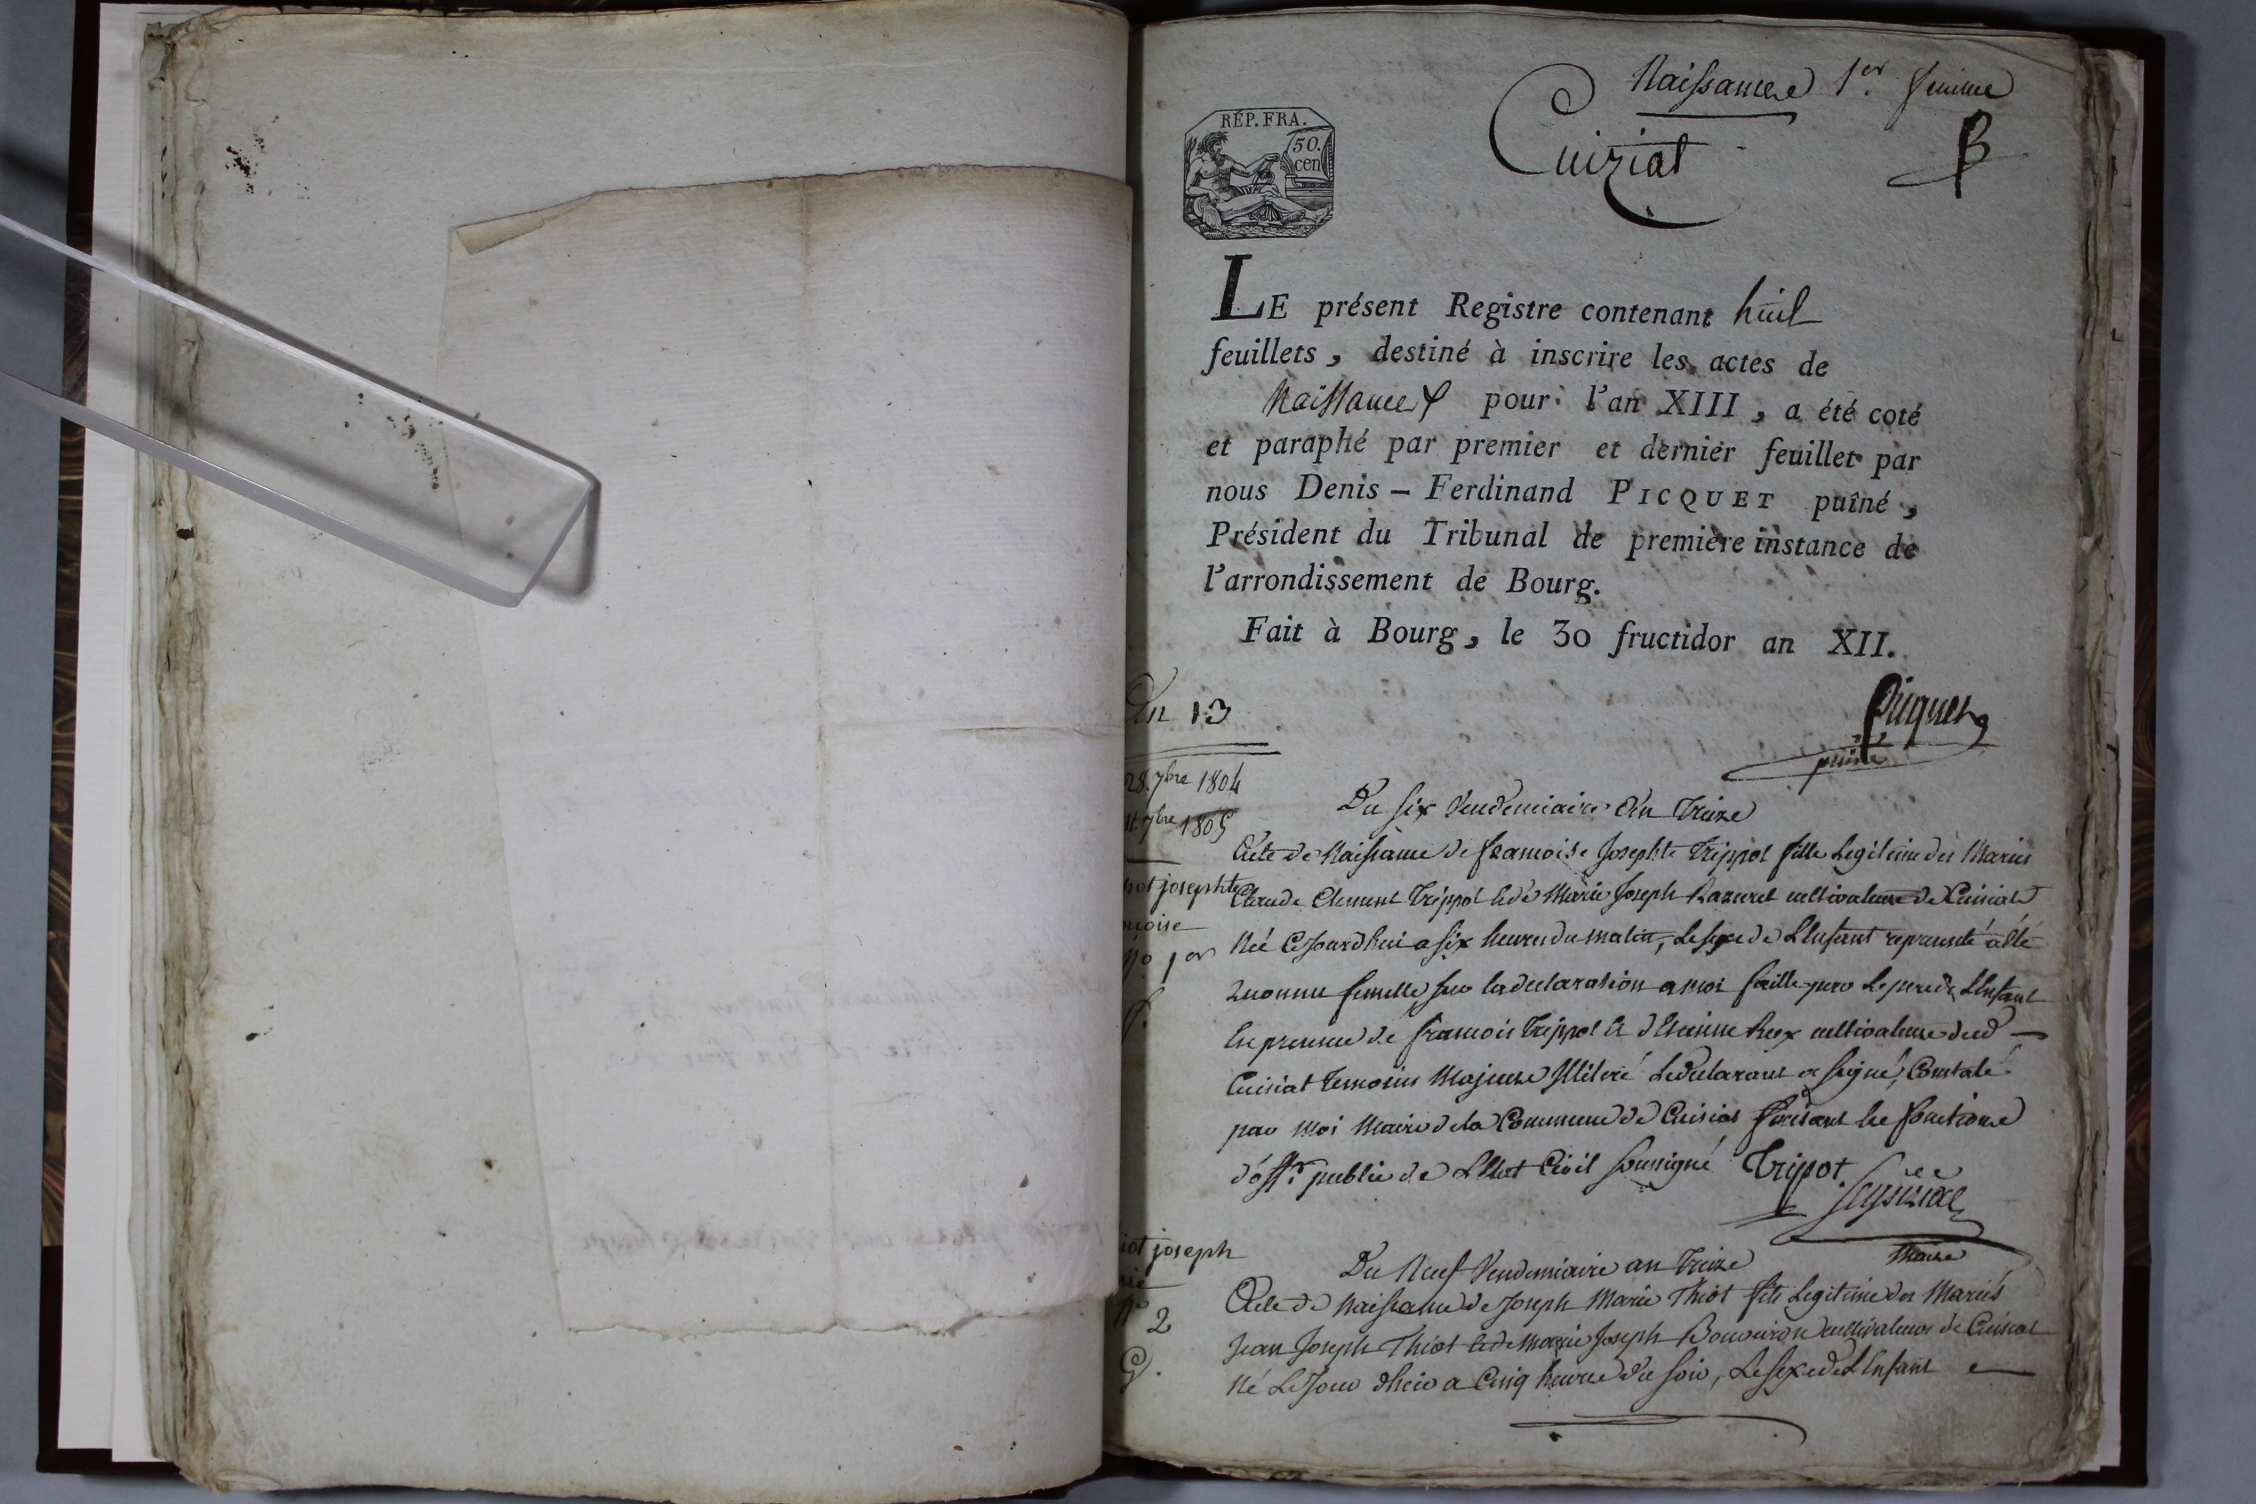 Naissance 1er
Cuiziat
RÉP. FRA.
50.
cen
LE présent Registre contenant huit
feuillets, destiné à inscrire les actes de
Naissances pour l'an XIII, a été coté
et paraphé par premier et dernier feuillet par
nous Denis - Ferdinand PICQUET puîné,
Président du Tribunal de première instance de
l'arrondissement de Bourg.
Fait à Bourg, le 30 fructidor an XII.
An 13
Picquet
puiné
28 7bre 1804
7bre 1805
Du six Vendemiaire An Treize
Acte de Naissance de francoise Josephte Trippot fille Legitime des Mariés
josephte
Claude Clement Trippot et de Marie Joseph Razuret cultivateurs de Cuisiat
Née Cejourdhui a six heures du matin, Le sexe de L'Enfant representé a été
No 1er
reconnu femelle sur la declaration a moi faitte par Le pere de L'Enfant
En presence de francois Trippot et d'Etienne cultivateurs dud
Cuisiat Temoins Majeurs Illiteré Le declarant a signé, Constaté
par moi Maire de la Commune de Cuisiat faisant les fonctions
d'offr. public de L'Etat Civil soussigné Tripot
joseph
Du Neuf Vendemiaire an Treize
Maire
No 2
Acte de Naissance de Joseph Marie Thiot fils Legitime des Mariés
Jean Joseph Thiot et de Marie Joseph cultivateurs de Cuisiat
Né Le Jour d'hier a Cinq heures du soir, Le sexe de L'Enfant